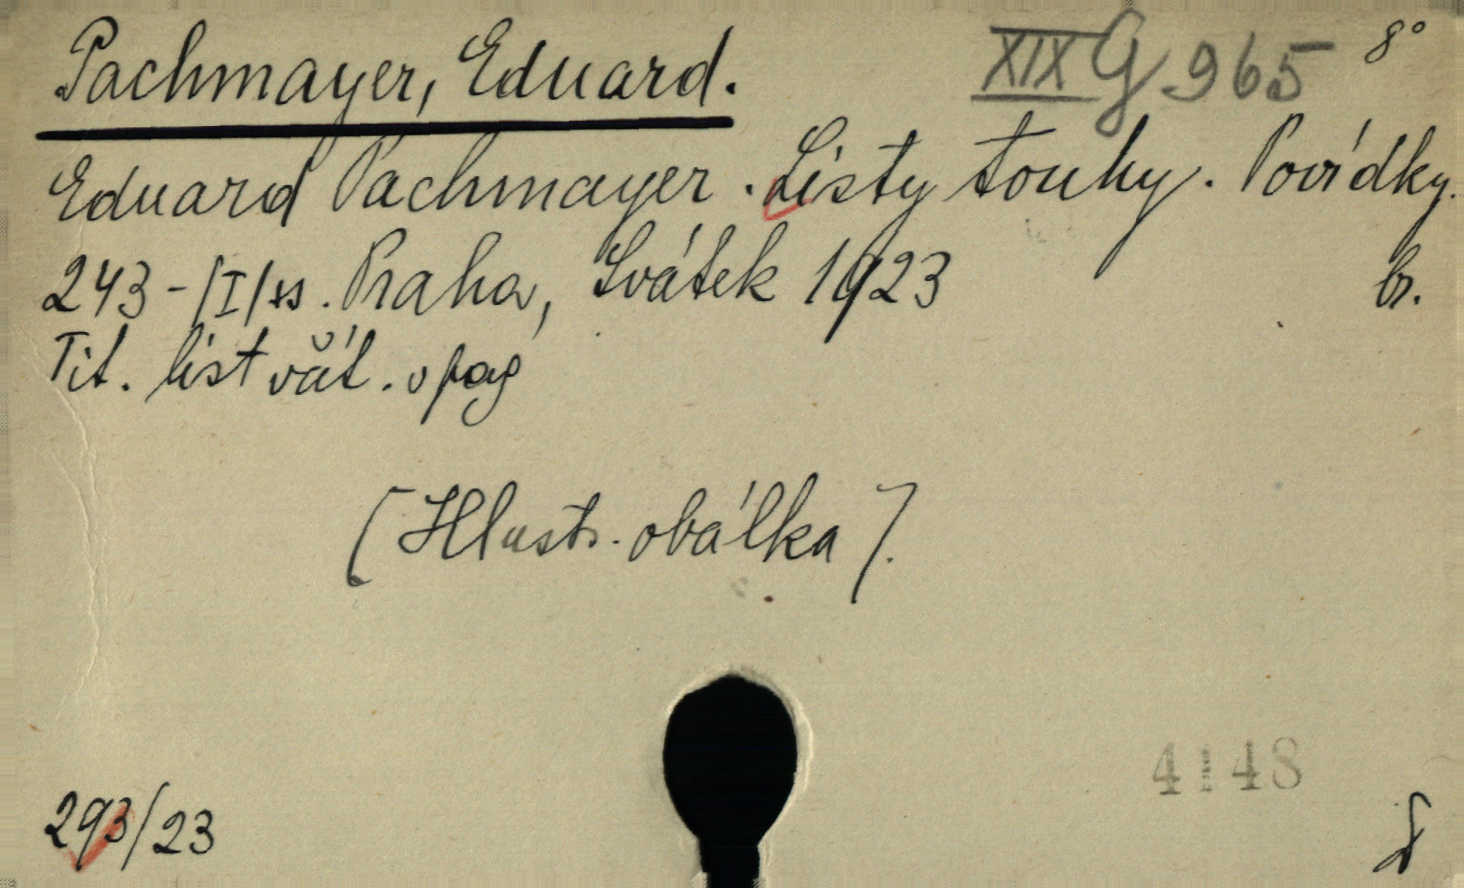 Pachmayer, Eduard. XIX G 965 8°
Eduard Pachmayer. Listy touhy. Povídky.
243-/I/ss. Praha, Svátek 1923 br.
Tit. list včít. v pag
[Illustr. obálka].
4148
293/23